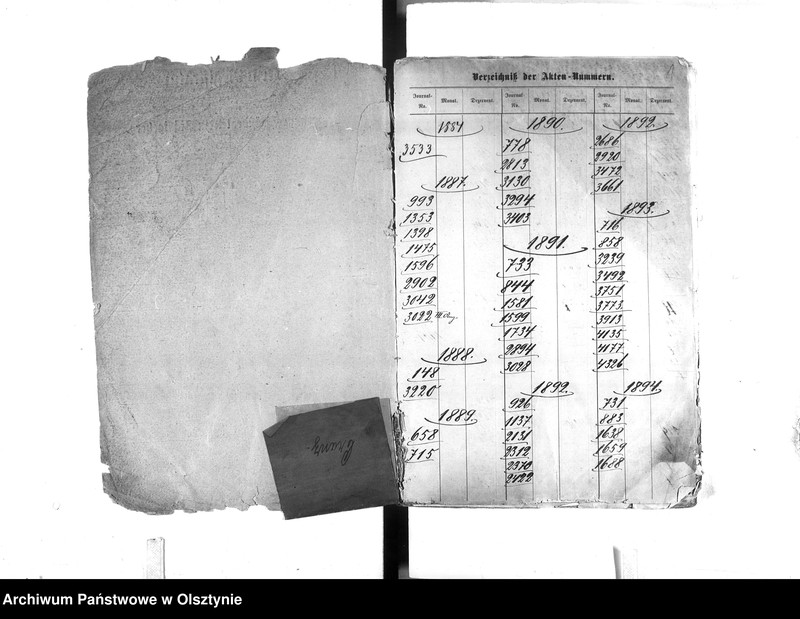 Verzeichniß der Akten-Nummern.
Journal-No. Monat. Dezernat. Journal-No. Monat. Dezernat. Journal-No. Monat. Dezernat.
3533
1887.
993
1353
1398
1475
1596
2902
3042
3022
1888.
148
3220
1889.
658
715
1890.
778
2813
3130
3294
3403
1891.
733
844
1581
1599
1734
2894
3028
1892.
926
1137
2131
2312
2370
2422
1892.
2686
2920
3472
3661
1893.
716
858
3239
3492
3751
3773
3913
4135
4177
4326
1894.
731
883
1638
1659
1688
Cranz
Archiwum Państwowe w Olsztynie